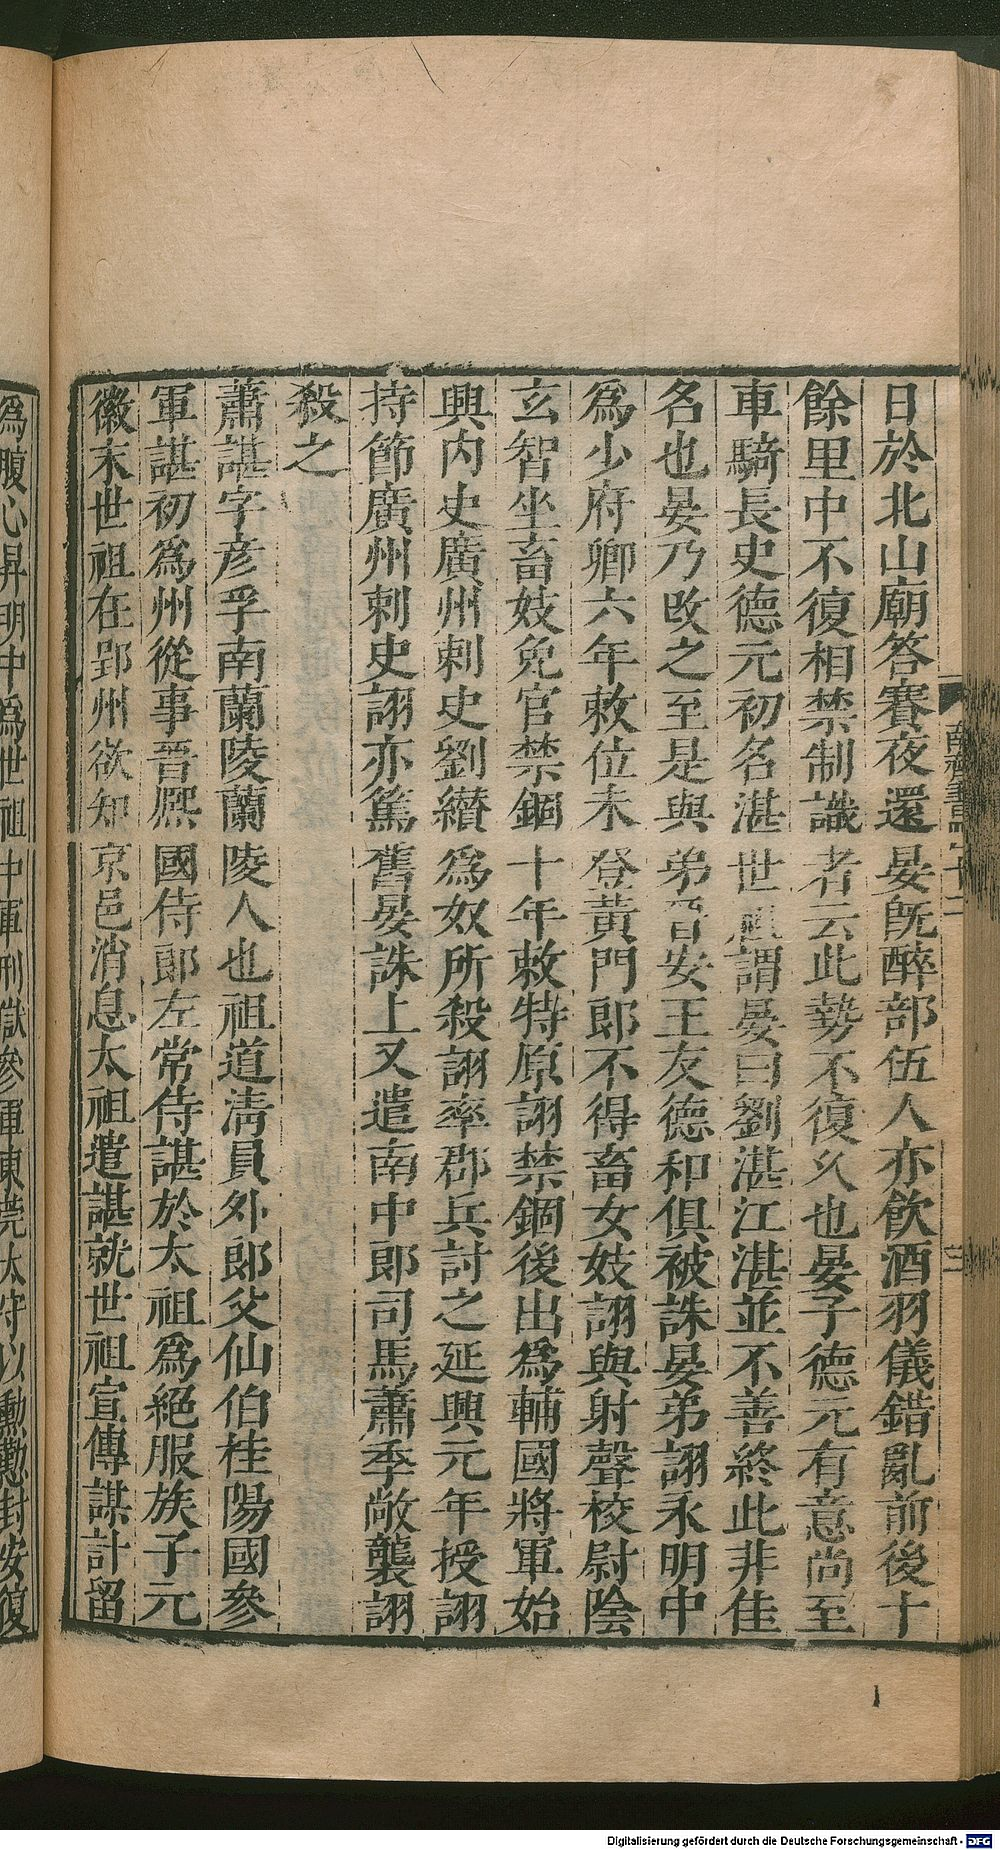 日於北山廟答賽夜還晏旣醉部伍人亦飲酒羽儀錯亂前後十
餘里中不復相禁制識者云此勢不復久也晏子德元有意尚至
車騎長史德元初名湛世祖謂晏曰劉湛江湛並不善終此非佳
名也晏乃改之至是與弟晉安王友德和俱被誅晏弟詡永明中
爲少府卿六年敕位未登黃門郎不得畜女妓詡與射聲校尉陰
玄智坐畜妓免官禁錮十年敕特原詡禁錮後出爲輔國將軍始
興內史廣州刺史劉纘爲奴所殺詡率郡兵討之延興元年授詡
持節廣州刺史詡亦篤舊晏誅上又遣南中郎司馬蕭季敞襲詡
殺之
蕭諶字彥孚南蘭陵蘭陵人也祖道淸員外郎父仙伯桂陽國參
軍諶初爲州從事晉熙國侍郎左常侍諶於太祖爲絕服族子元
徽末世祖在郢州欲知京邑消息太祖遣諶就世祖宣傳謀計留
爲腹心昇明中爲世祖中軍刑獄參軍東莞太守以勳勤封安復
Digitalisierung gefördert durch die Deutsche Forschungsgemeinschaft - DFG